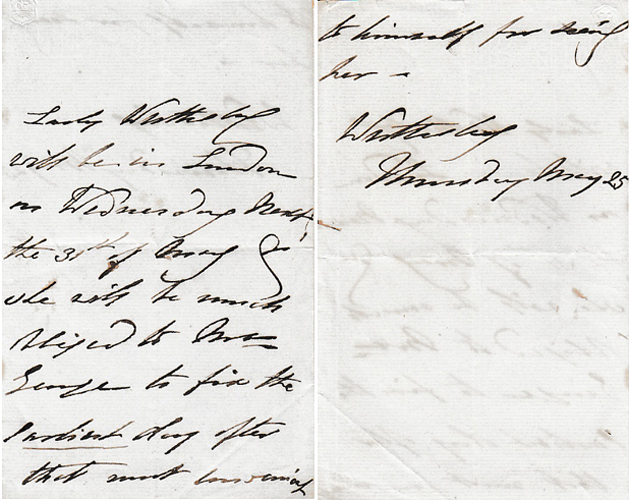 Lady
will be in London
on Wednesday Next,
the 31st of May &
she will be much
obliged to
George to fix the
earliest day after
that most convenient
to himself for seeing
her -
Thursday May 25